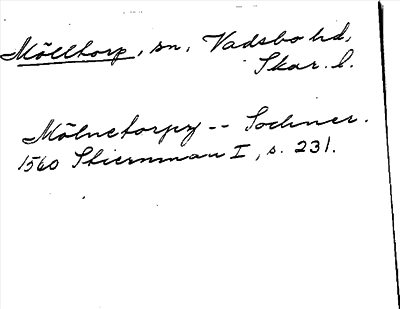 Mölltorp, sn, Vadsbo hd,
Skar. l.
Mölnetorpz -- Sochner.
1560 Stiernman I, s. 231.